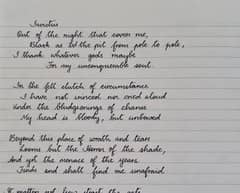 Invictus
Out of the night that covers me,
Black as the pit from pole to pole,
I thank whatever gods maybe
For my unconquerable soul.
In the fell clutch of circumstance
I have not winced nor cried aloud
Under the bludgeonings of chance
My head is bloody, but unbowed
Beyond this place of wrath and tears
Looms but the Horror of the shade,
And yet the menace of the years
Finds and shall find me unafraid
It matters not how strait the gate